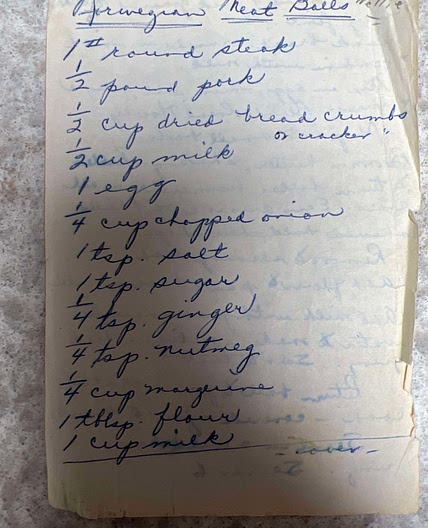 Norwegian Meat Balls
1# round steak
1/2 pound pork
1/2 cup dried bread crumbs
or cracker "
1/2 cup milk
1 egg
1/4 cup chopped onion
1 tsp. salt
1 tsp. sugar
1/4 tsp. ginger
1/4 tsp. nutmeg
1/4 cup margerine
1 tblsp. flour
1 cup milk
- over -